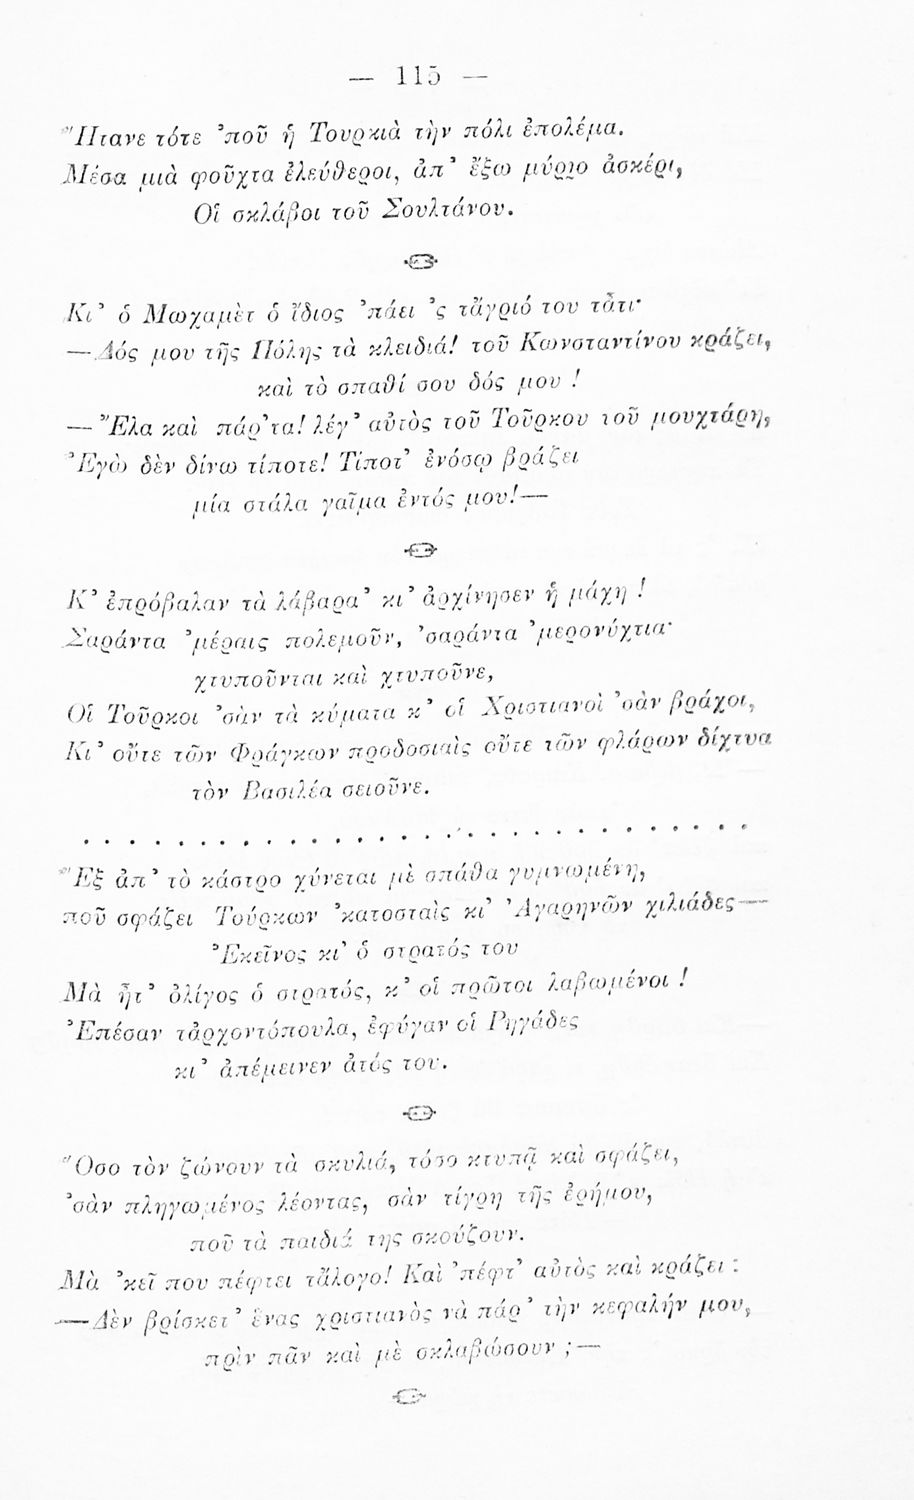 — 115 —
Ἤτανε τότε ’ποῦ ἡ Τουρκιὰ τὴν πόλι ἐπολέμα.
Μέσα μιὰ φοῦχτα ἐλεύθεροι, ἀπ’ ἔξω μύριο ἀσκέρι,
Οἱ σκλάβοι τοῦ Σουλτάνου.
Κι’ ὁ Μωχαμὲτ ὁ ἴδιος ’πάει ’ς τἄγριό του τἆτι·
—Δός μου τῆς Πόλης τὰ κλειδιά! τοῦ Κωνσταντίνου κράζει,
καὶ τὸ σπαθί σου δός μου !
— Ἔλα καὶ πάρ’τα! λέγ’ αὐτὸς τοῦ Τούρκου τοῦ μουχτάρη,
Ἐγὼ δὲν δίνω τίποτε! Τίποτ’ ἐνόσῳ βράζει
μία στάλα γαῖμα ἐντός μου!—
Κ’ ἐπρόβαλαν τὰ λάβαρα’ κι’ ἀρχίνησεν ἡ μάχη !
Σαράντα ’μέραις πολεμοῦν, ’σαράντα ’μερονύχτια·
χτυποῦνται καὶ χτυποῦνε,
Οἱ Τοῦρκοι ’σὰν τὰ κύματα κ’ οἱ Χριστιανοὶ ’σὰν βράχοι,
Κι’ οὔτε τῶν Φράγκων προδοσιαὶς οὔτε τῶν φλάρων δίχτυα
τὸν Βασιλέα σειοῦνε.
. . . . . . . . . . . . . . . . . . . . . . . . . . . . . . . . . . . .
Ἔξ ἀπ’ τὸ κάστρο χύνεται μὲ σπάθα γυμνωμένη,
ποῦ σφάζει Τούρκων ’κατοσταὶς κι’ Ἀγαρηνῶν χιλιάδες—
Ἐκεῖνος κι’ ὁ στρατός του
Μὰ ἦτ’ ὀλίγος ὁ στρατός, κ’ οἱ πρῶτοι λαβωμένοι !
Ἐπέσαν τἀρχοντόπουλα, ἐφύγαν οἱ Ρηγάδες
κι’ ἀπέμεινεν ἀτός του.
Ὅσο τὸν ζώνουν τὰ σκυλιά, τόσο κτυπᾷ καὶ σφάζει,
’σὰν πληγωμένος λέοντας, σὰν τίγρη τῆς ἐρήμου,
ποῦ τὰ παιδιά της σκούζουν.
Μὰ ’κεῖ που πέφτει τἄλογο! Καὶ ’πέφτ’ αὐτὸς καὶ κράζει :
—Δὲν βρίσκετ’ ἕνας χριστιανὸς νὰ πάρ’ τὴν κεφαλήν μου,
πρὶν πᾶν καὶ μὲ σκλαβώσουν ;—